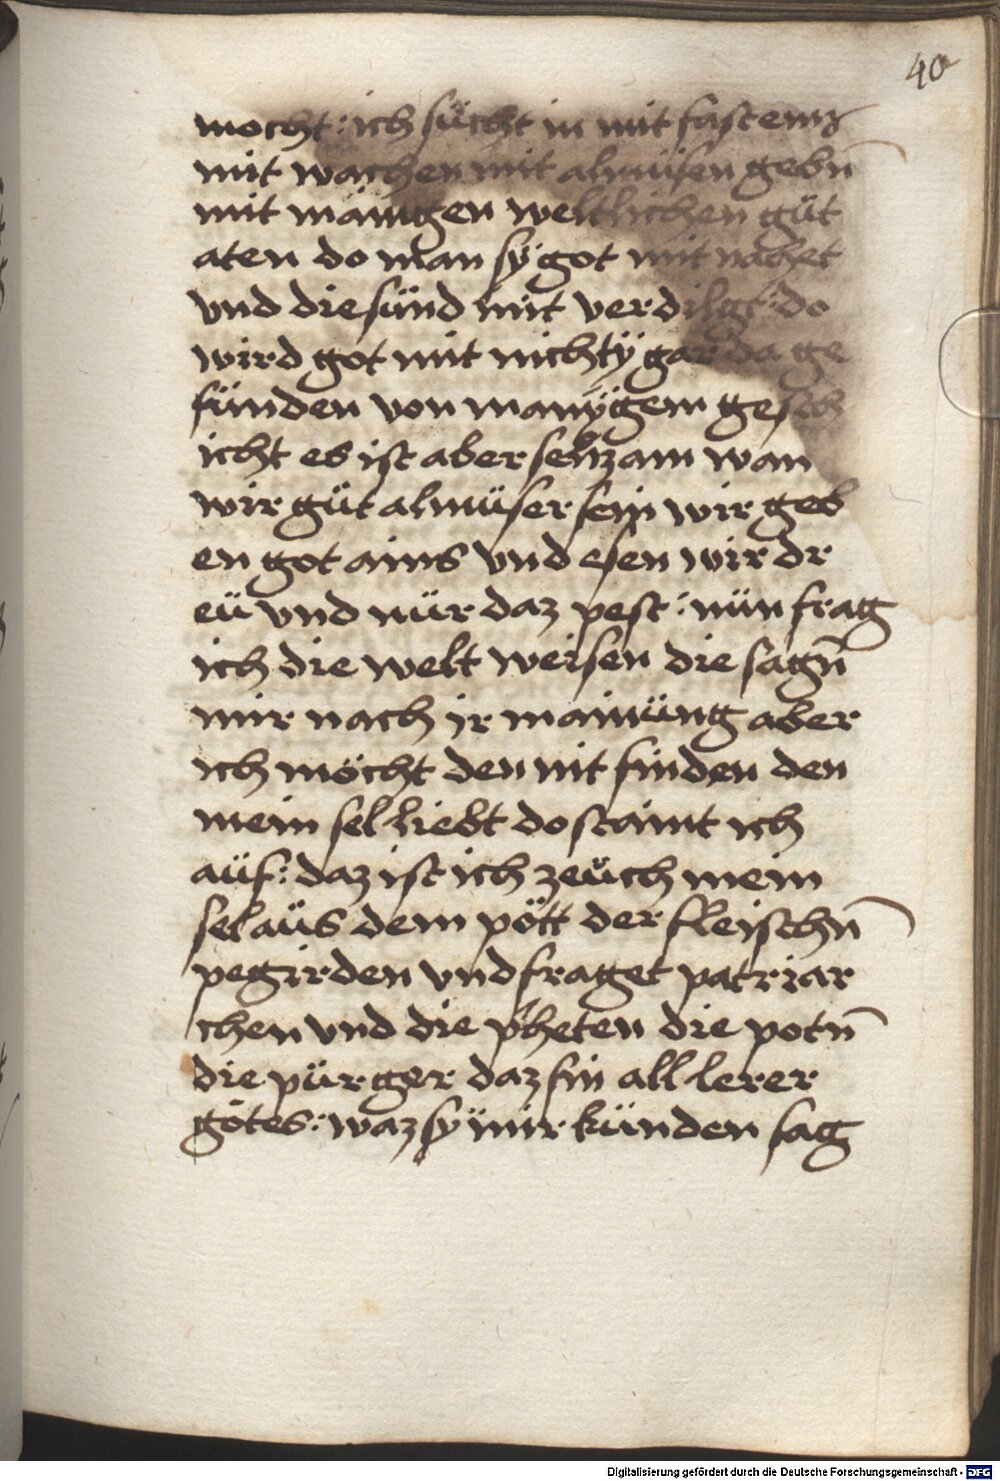 40
mocht : ich sücht in mit fasten
mit wachen mit almüsen gebn̄
mit mänigen weltlichen güt
aten do man sÿ got mit nachet
vnd die sünd mit verdilgt : do
wird got mit nichtÿ gar da ge
fünden von manÿgem gesch
icht es ist aber selczam wan
wir güt almüser sein wir geb
en got ains vnd esen wir dr
eü vnd nür daz pest : nün frag
ich die welt weisen die sagn̄
mir nach ir mainüng aber
ich möcht den nit finden den
mein sel liebt do staint ich
aüf : daz ist ich zeüch mein
sel aüs dem pött der fleischn̄
pegirden vnd fraget patriar
chen vnd die ṕheten die potn̄
die pürger daz sin all lerer
gotes : waz sÿ mir künden sag
Digitalisierung gefördert durch die Deutsche Forschungsgemeinschaft - DFG